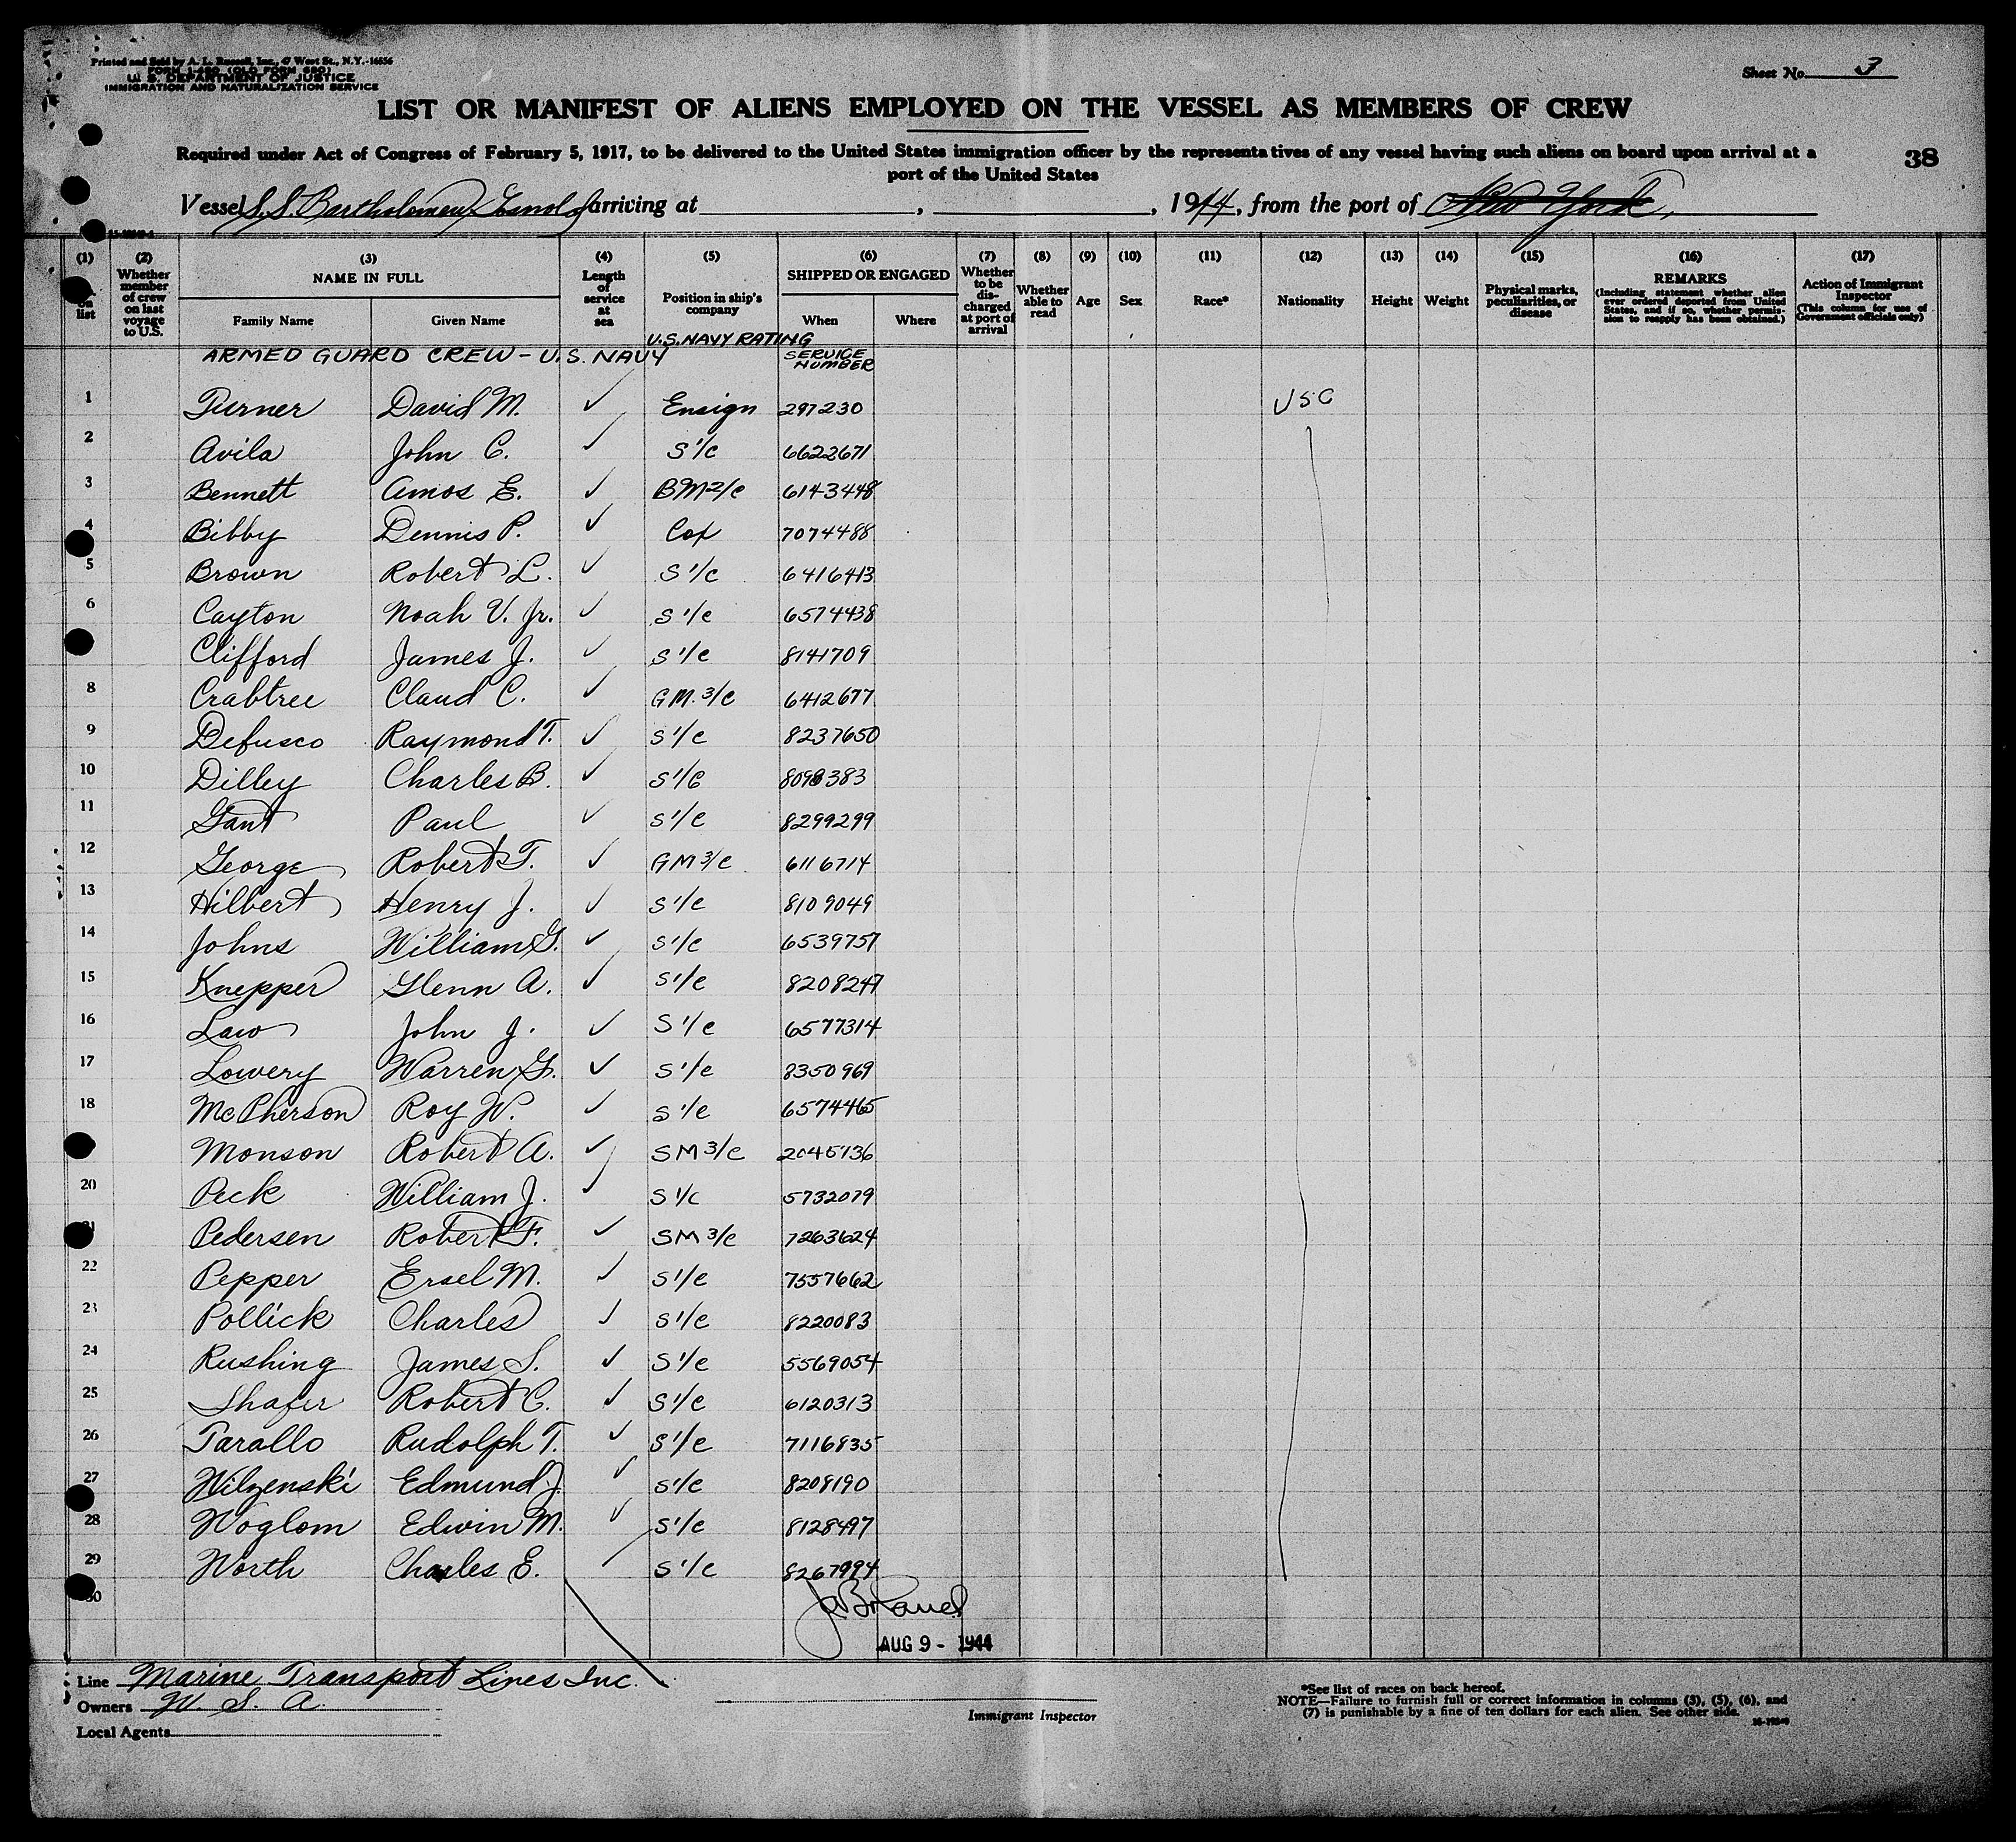 Printed and Sold by A. L. Russell, Inc., 47 West St., N.Y.-16556
FORM I-480 (OLD FORM 680)
U. S. DEPARTMENT OF JUSTICE
IMMIGRATION AND NATURALIZATION SERVICE
Sheet No. 3
LIST OR MANIFEST OF ALIENS EMPLOYED ON THE VESSEL AS MEMBERS OF CREW
Required under Act of Congress of February 5, 1917, to be delivered to the United States immigration officer by the representatives of any vessel having such aliens on board upon arrival at a
port of the United States
38
Vessel S.S. Bartholomew arriving at , , 1944, from the port of New York,
(1) on list
(2) Whether member of crew on last voyage to U.S.
(3) NAME IN FULL Family Name Given Name
(4) Length of service at sea
(5) Position in ship's company
(6) SHIPPED OR ENGAGED When Where
(7) Whether to be discharged at port of arrival
(8) Whether able to read
(9) Age
(10) Sex
(11) Race*
(12) Nationality
(13) Height
(14) Weight
(15) Physical marks, peculiarities, or disease
(16) REMARKS (Including statement whether alien ever ordered deported from United States, and if so, whether permission to reapply has been obtained.)
(17) Action of Immigrant Inspector (This column for use of Government officials only)
U.S. NAVY RATING
ARMED GUARD CREW - U.S. NAVY SERVICE NUMBER
1 Turner David M. ✓ Ensign 297230 USC
2 Avila John C. ✓ S1/c 6622671
3 Bennett Amos E. ✓ BM2/c 6143448
4 Bibby Dennis P. ✓ Cox 7074488
5 Brown Robert L. ✓ S1/c 6416413
6 Cayton Noah V. Jr. ✓ S1/c 6574438
Clifford James J. ✓ S1/c 8141709
8 Crabtree Claud C. ✓ GM.3/c 6412677
9 Defusco Raymond T. ✓ S1/c 8237650
10 Dilley Charles B. ✓ S1/c
11 Gant Paul ✓ S1/c 8299299
12 George Robert T. ✓ GM3/c 6116714
13 Hilbert Henry J. ✓ S1/c 8109049
14 Johns William G. ✓ S1/c 6539757
15 Knepper Glenn A. ✓ S1/c 8208247
16 Law John J. ✓ S1/c 6577314
17 Lowery Warren G. ✓ S1/c 8350969
18 McPherson Roy W. ✓ S1/c 6574465
Monson Robert A. ✓ SM3/c 2045136
20 Peck William J. ✓ S1/c 5732079
21 Pedersen Robert F. ✓ SM3/c 7263624
22 Pepper Ersel M. ✓ S1/c 7557662
23 Pollick Charles ✓ S1/c 8220083
24 Rushing James S. ✓ S1/c 5569054
25 Shafer Robert C. ✓ S1/c 6120313
26 Tarallo Rudolph T. ✓ S1/c 7116835
27 Wilzenski Edmund J. ✓ S1/c 8208190
28 Woglom Edwin M. ✓ S1/c 8128497
29 Worth Charles E. S1/c 8267994
30
AUG 9 - 1944
Line Marine Transport Lines Inc.
Owners W. S. A.
Local Agents
Immigrant Inspector
*See list of races on back hereof.
NOTE—Failure to furnish full or correct information in columns (3), (5), (6), and
(7) is punishable by a fine of ten dollars for each alien. See other side.